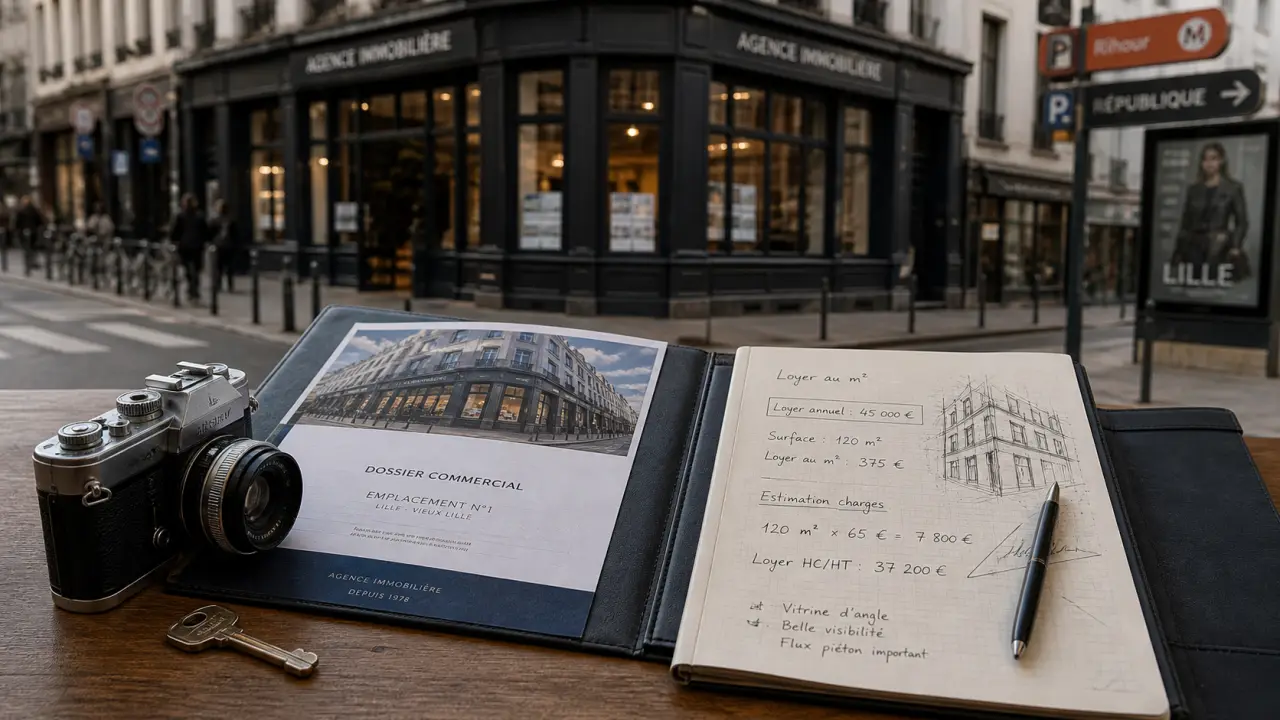 AGENCE IMMOBILIÈRE
AGENCE IMMOBILIÈRE
P Rihour M
P RÉPUBLIQUE →
LILLE
DOSSIER COMMERCIAL
EMPLACEMENT N°1
LILLE - VIEUX LILLE
AGENCE IMMOBILIÈRE
DEPUIS 1976
Loyer au m²
Loyer annuel : 45 000 €
Surface : 120 m²
Loyer au m² : 375 €
Estimation charges
120 m² × 65 € = 7 800 €
Loyer HC/HT : 37 200 €
Vitrine d'angle
Belle visibilité
Flux piéton important